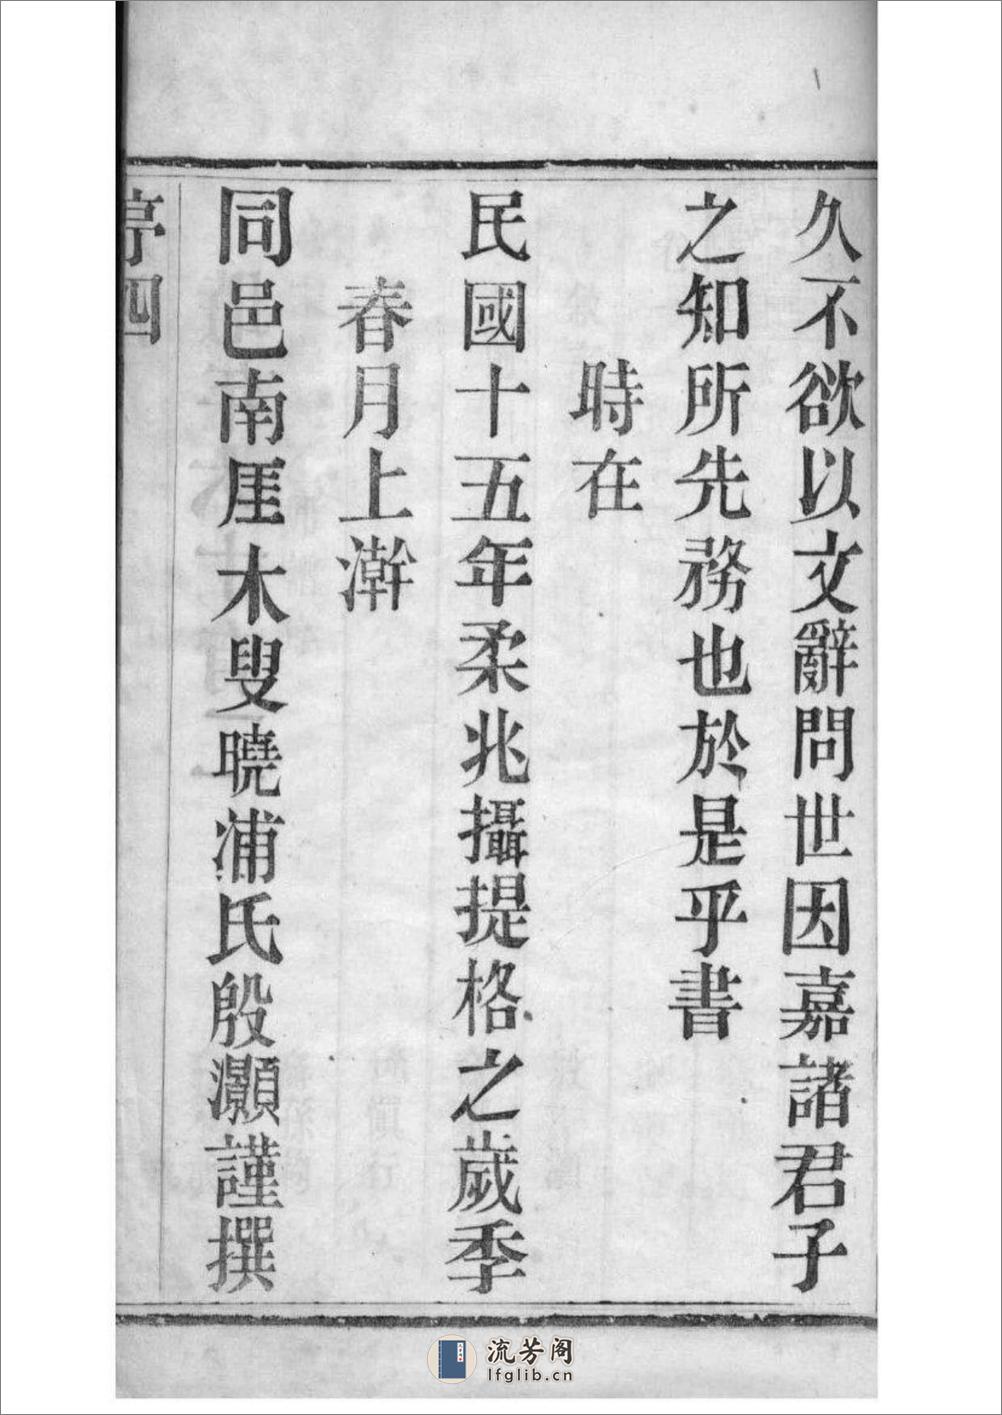 久不欲以文辭問世因嘉諸君子
之知所先務也於是乎書
時在
民國十五年柔兆攝提格之歲季
春月上澣
同邑南厓木叟曉浦氏殷灝謹撰
四
流芳阁
lfglib.cn